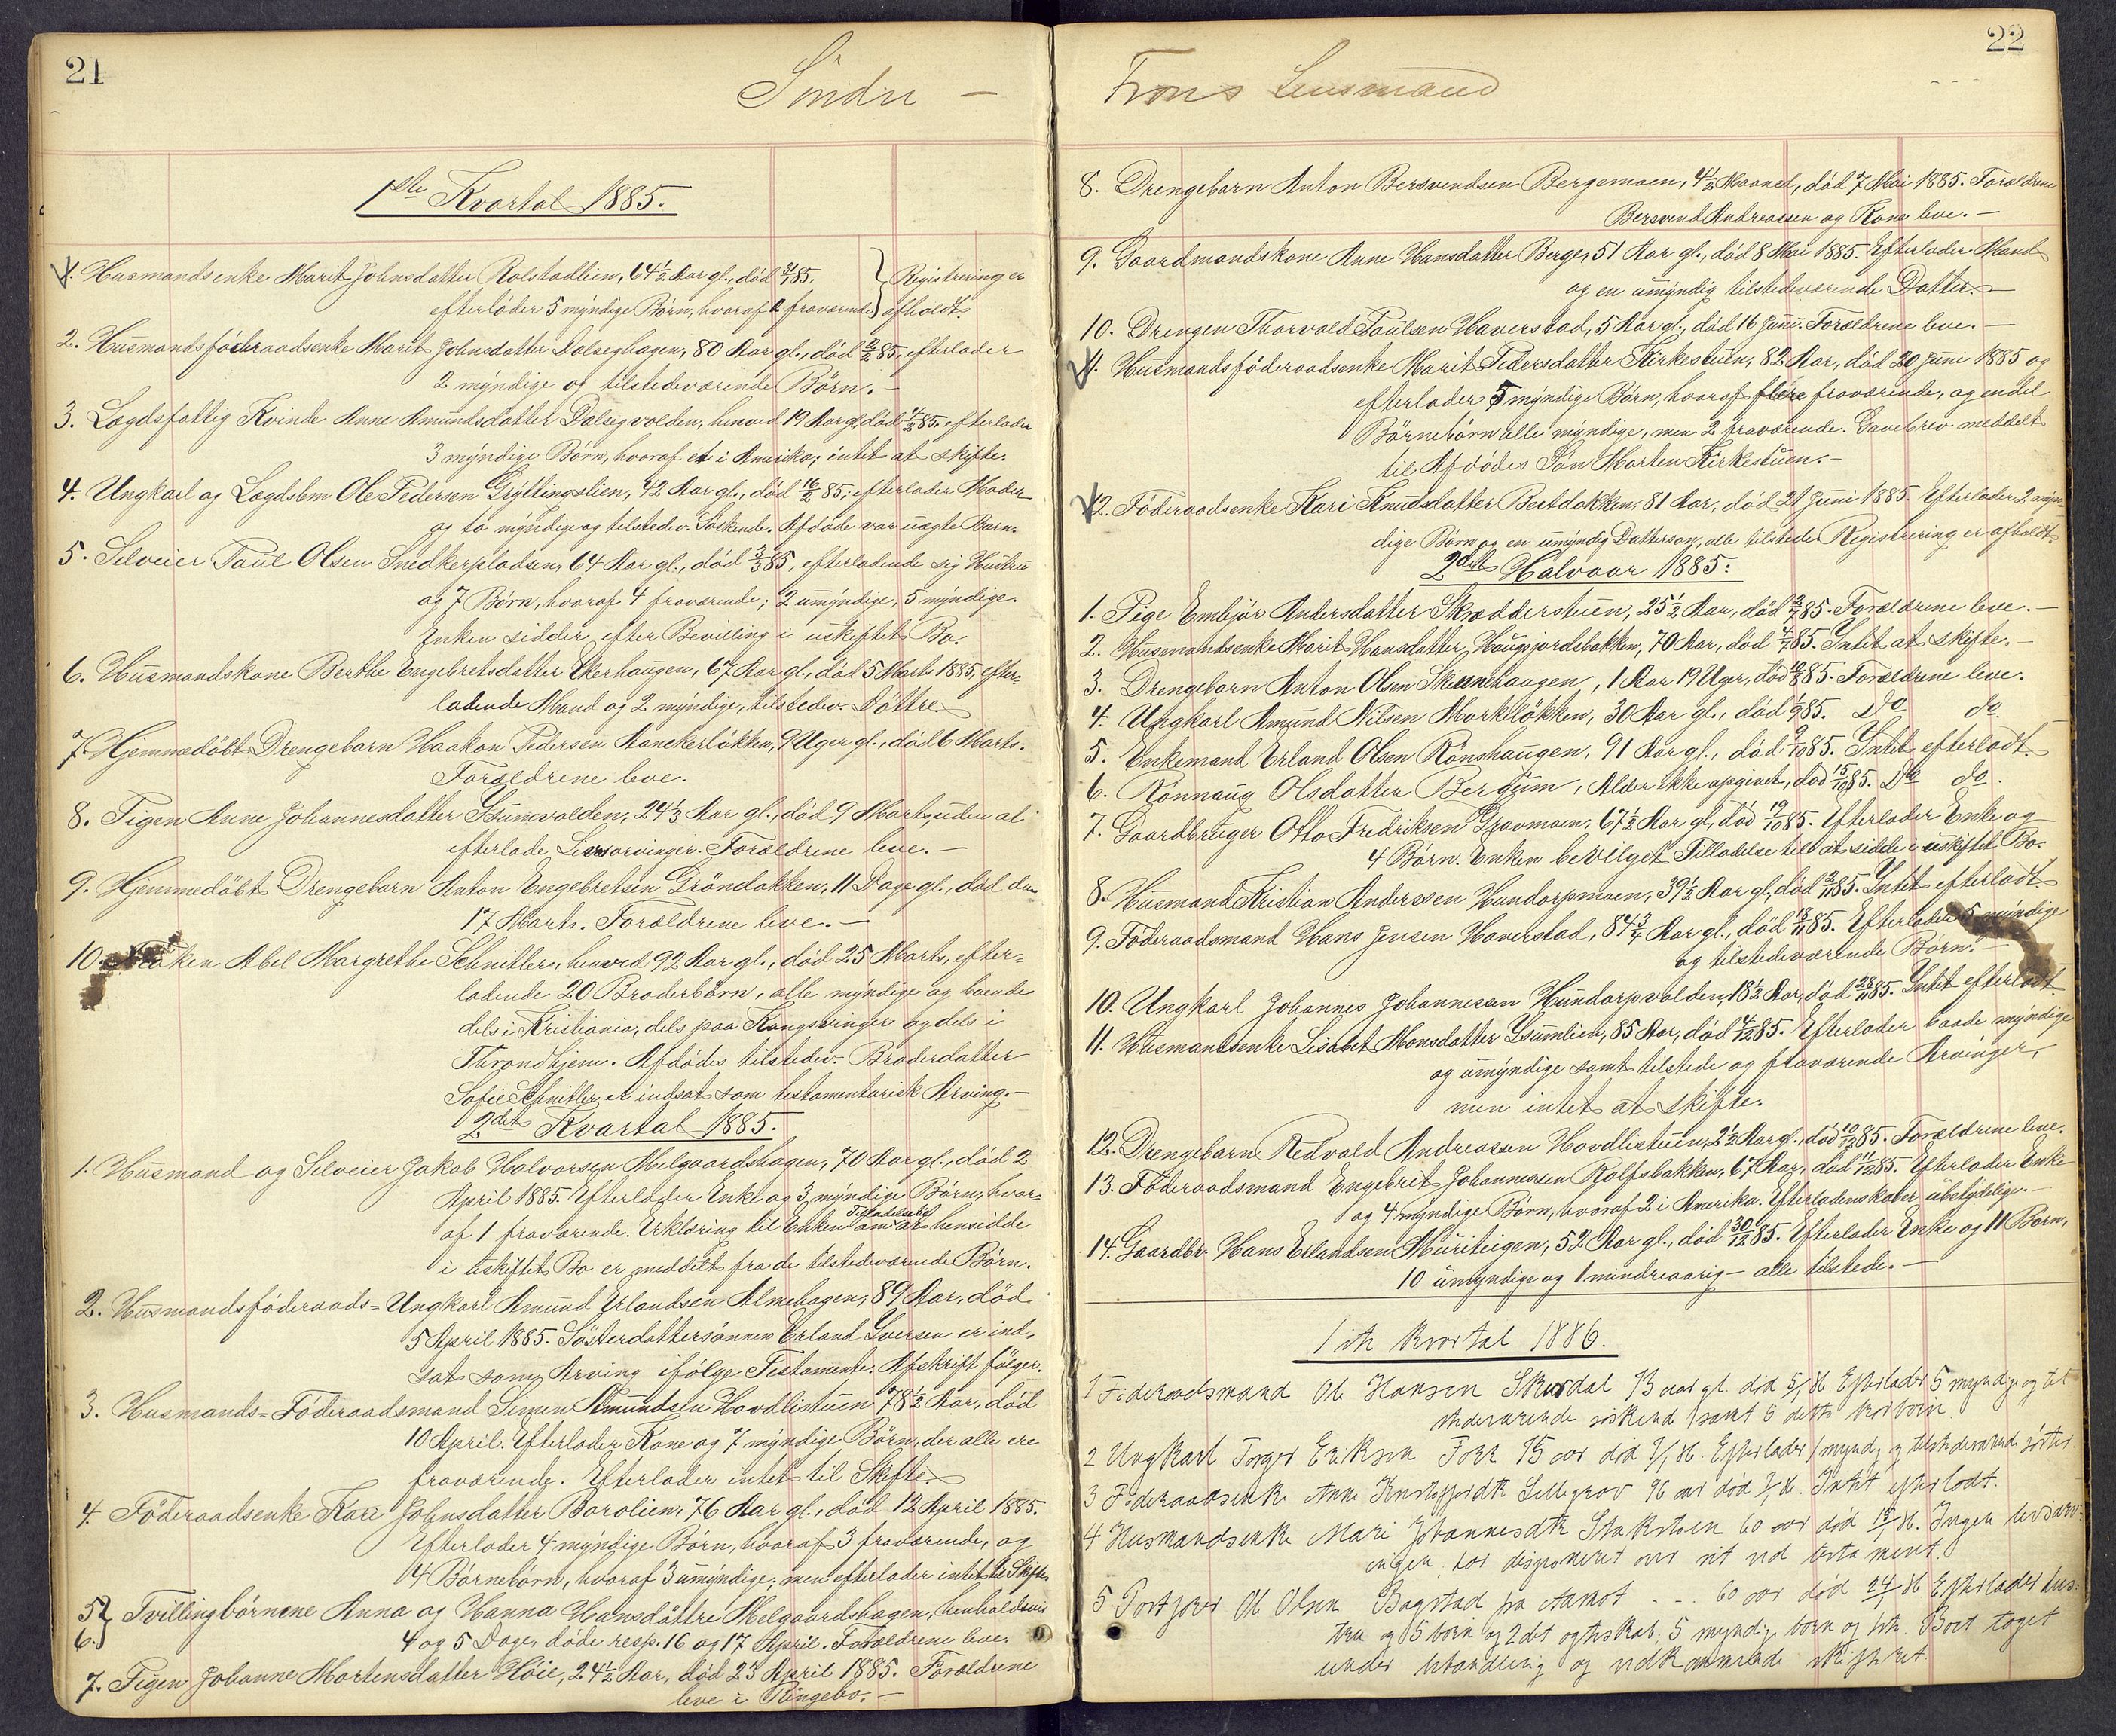 21
Söndre —
1ste Kvartal 1885.
1. Husmandsenke Marit Johnsdatter Rolstadlien, 64 1/2 Aar gl., död 31/1 85.
efterlader 5 myndige Börn, hvoraf 2 fraværende } Registrering er afholdt.
2. Husmandsföderaadsenke Marit Johnsdatter Dalseghagen, 80 Aar gl., död 2/2 85, efterlader
2 myndige og tilstedeværende Börn. —
3. Lægdsfattig Kvinde Anne Amundsdatter Dalsegvolden, henved 79 Aar gl., död 4/2 85. efterlader
3 myndige Börn, hvoraf et i Amerika; intet at skifte.
4. Ungkarl og Lægdslem Ole Pedersen Gryttingslien, 42 Aar gl., död 16/2 85; efterlader Moder
og to myndige og tilstedev. Söskende. Afdöde var uægte Barn.
5. Selveier Paul Olsen Snedkerpladsen, 64 Aar gl., död 3/3 85, efterladende sig Hustru
og 7 Börn, hvoraf 4 fraværende; 2 umyndige, 5 myndige.
Enken sidder efter Bevilling i uskiftet Bo.
6. Husmandskone Berthe Engebretsdatter Ekerhaugen, 67 Aar gl., död 5 Marts 1885, efter-
ladende Mand og 2 myndige, tilstedev. Döttre. —
7. Hjemmedöbt Drengebarn Haakon Pedersen Aanekerlökken, 9 Uger gl., död 6 Marts.
Forældrene leve.
8. Pigen Anne Johannesdatter Isumvolden, 24 1/3 Aar gl., död 9 Marts, uden at
efterlade Livsarvinger. Forældrene leve. —
9. Hjemmedöbt Drengebarn Anton Engebretsen Gröndokken, 11 Dage gl., död den
17 Marts. Forældrene leve. —
10. Fröken Abel Margrethe Schnitler, henved 92 Aar gl., död 25 Marts, efter-
ladende 20 Broderbörn, alle myndige og boende
dels i Kristiania, dels paa Kongsvinger og dels i
Throndhjem. Afdödes tilstedev. Broderdatter
Sofie Schnitler er indsat som testamentarisk Arving. —
2det Kvartal 1885.
1. Husmand og Selveier Jakob Halvorsen Melgaardshagen, 70 Aar gl., död 2
April 1885. Efterlader Enke og 3 myndige Börn, hvor-
af 1 fraværende. Erklæring til Enken om Tilladelse til at hensidde
i uskiftet Bo er meddelt fra de tilstedeværende Börn.
2. Husmandsföderaads-Ungkarl Amund Erlandsen Almehagen, 89 Aar, död
5 April 1885. Sösterdattersönnen Erland Iversen er ind-
sat som Arving ifölge Testamente. Afskrift fölger.
3. Husmands-Föderaadsmand Simen Amundsen Hovdlistuen 78 1/2 Aar, död
10 April. Efterlader Kone og 7 myndige Börn, der alle ere
fraværende. Efterlader intet til Skifte.
4. Föderaadsenke Kari Johnsdatter Borolien, 76 Aar gl., död 12 April 1885.
Efterlader 4 myndige Börn, hvoraf 3 fraværende, og
14 Börnebörn, hvoraf 3 umyndige; men efterlader intet til Skifte.
5. 6. } Tvillingbörnene Anna og Hanna Hansdöttre Melgaardshagen, henholdsvis
4 og 5 Dage, döde resp. 16 og 17 April. Forældrene leve.
7. Pigen Johanne Mortensdatter Höie, 24 1/2 Aar, död 23 April 1885. Forældrene
leve i Ringebo. —
22
Frons Lensmand
8. Drengebarn Anton Bersvendsen Bergemoen, 4 1/2 Maaned, död 7 Mai 1885. Forældrene
Bersvend Andreassen og Kone leve. —
9. Gaardmandskone Anne Hansdatter Berge, 51 Aar gl., död 8 Mai 1885. Efterlader Mand
og en umyndig tilstedeværende Datter. —
10. Drengen Thorvald Paulsen Haverstad, 5 Aar gl., död 16 Juni. Forældrene leve. —
11. Husmandsföderaadsenke Marit Pedersdatter Kirkestuen, 82 Aar, död 20 Juni 1885 og
efterlader 5 myndige Börn, hvoraf flere fraværende, og endel
Börnebörn alle myndige, men 2 fraværende. Gavebrev meddelt
til Afdödes Sön Morten Kirkestuen. —
12. Föderaadsenke Kari Knudsdatter Beitdokken, 81 Aar, död 21 Juni 1885. Efterlader 2 myn-
dige Börn og en umyndig Dattersön, alle tilstede. Registrering er afholdt.
2det Halvaar 1885.
1. Pige Embjör Andersdatter Skrædderstuen, 25 1/2 Aar, död 2/7 85. Forældrene leve. —
2. Husmandsenke Marit Hansdatter, Haugjordsbakken, 70 Aar, död 4/7 85. Intet at skifte. —
3. Drengebarn Anton Olsen Skinnhaugen, 1 Aar 19 Uger, död 10/8 85. Forældrene leve.
4. Ungkarl Amund Nilsen Marklökken, 30 Aar gl., död 1/9 85. Do do.
5. Enkemand Erland Olsen Rönshaugen, 91 Aar gl., död 9/10 85. Intet efterladt.
6. Rönnaug Olsdatter Bergum, Alder ikke opgivet, död 15/10 85. Do do.
7. Gaardbruger Otto Fredriksen Gravmoen, 67 1/2 Aar gl., död 19/10 85. Efterlader Enke og
4 Börn. Enken bevilget Tilladelse til at sidde i uskiftet Bo.
8. Husmand Kristian Anderssen Hundorpmoen, 39 1/2 Aar gl., död 2/11 85. Intet efterladt.
9. Föderaadsmand Hans Jensen Haverstad, 84 3/4 Aar gl., död 18/11 85. Efterlader 5 myndige
og tilstedeværende Börn. —
10. Ungkarl Johannes Johannessen Hundorpvolden, 18 1/2 Aar, död 28/11 85. Intet efterladt.
11. Husmandsenke Lisabet Monsdatter Isumlien, 85 Aar, död 4/12 85. Efterlader baade myndige
og umyndige samt tilstede og fraværende Arvinger,
men intet at skifte.
12. Drengebarn Redvald Andreassen Hovdlistuen, 2 1/2 Aar gl., död 10/12 85. Forældrene leve.
13. Föderaadsmand Engebret Johannessen Rolfsbakken, 67 Aar, död 11/12 85. Efterlader Enke
og 4 myndige Börn, hvoraf 2 i Amerika. Efterladenskaber ubetydelige. —
14. Gaardbr. Hans Erlandsen Muriteigen, 52 Aar gl., död 30/12 85. Efterlader Enke og 11 Börn,
10 umyndige og 1 mindreaarig — alle tilstede. —
1ste Kvartal 1886.
1 Föderaadsmand Ole Hansen Skurdal 73 aar gl. död 5/1 86 Efterlader 5 myndige og til
stedeværende söskend samt 6 dette
2 Ungkarl Torger Eriksen 75 aar död 7/1 86. Efterlader 1 myndig og tilstedeværende söster.
3 Föderaadsenke Anne 96 aar död Intet efterladt.
4 Husmandsenke Mari Johannesdtr 60 aar död 15/1 86. Ingen livsarv-
inger, har disponeret over sit ved testament.
5 Ole Olsen Bagstad 60 aar död 24/1 86 Efterlader hus-
tru og 5 börn 2det egteskab, 5 myndige börn Boet taget
under behandling og vedkommende skifteret.